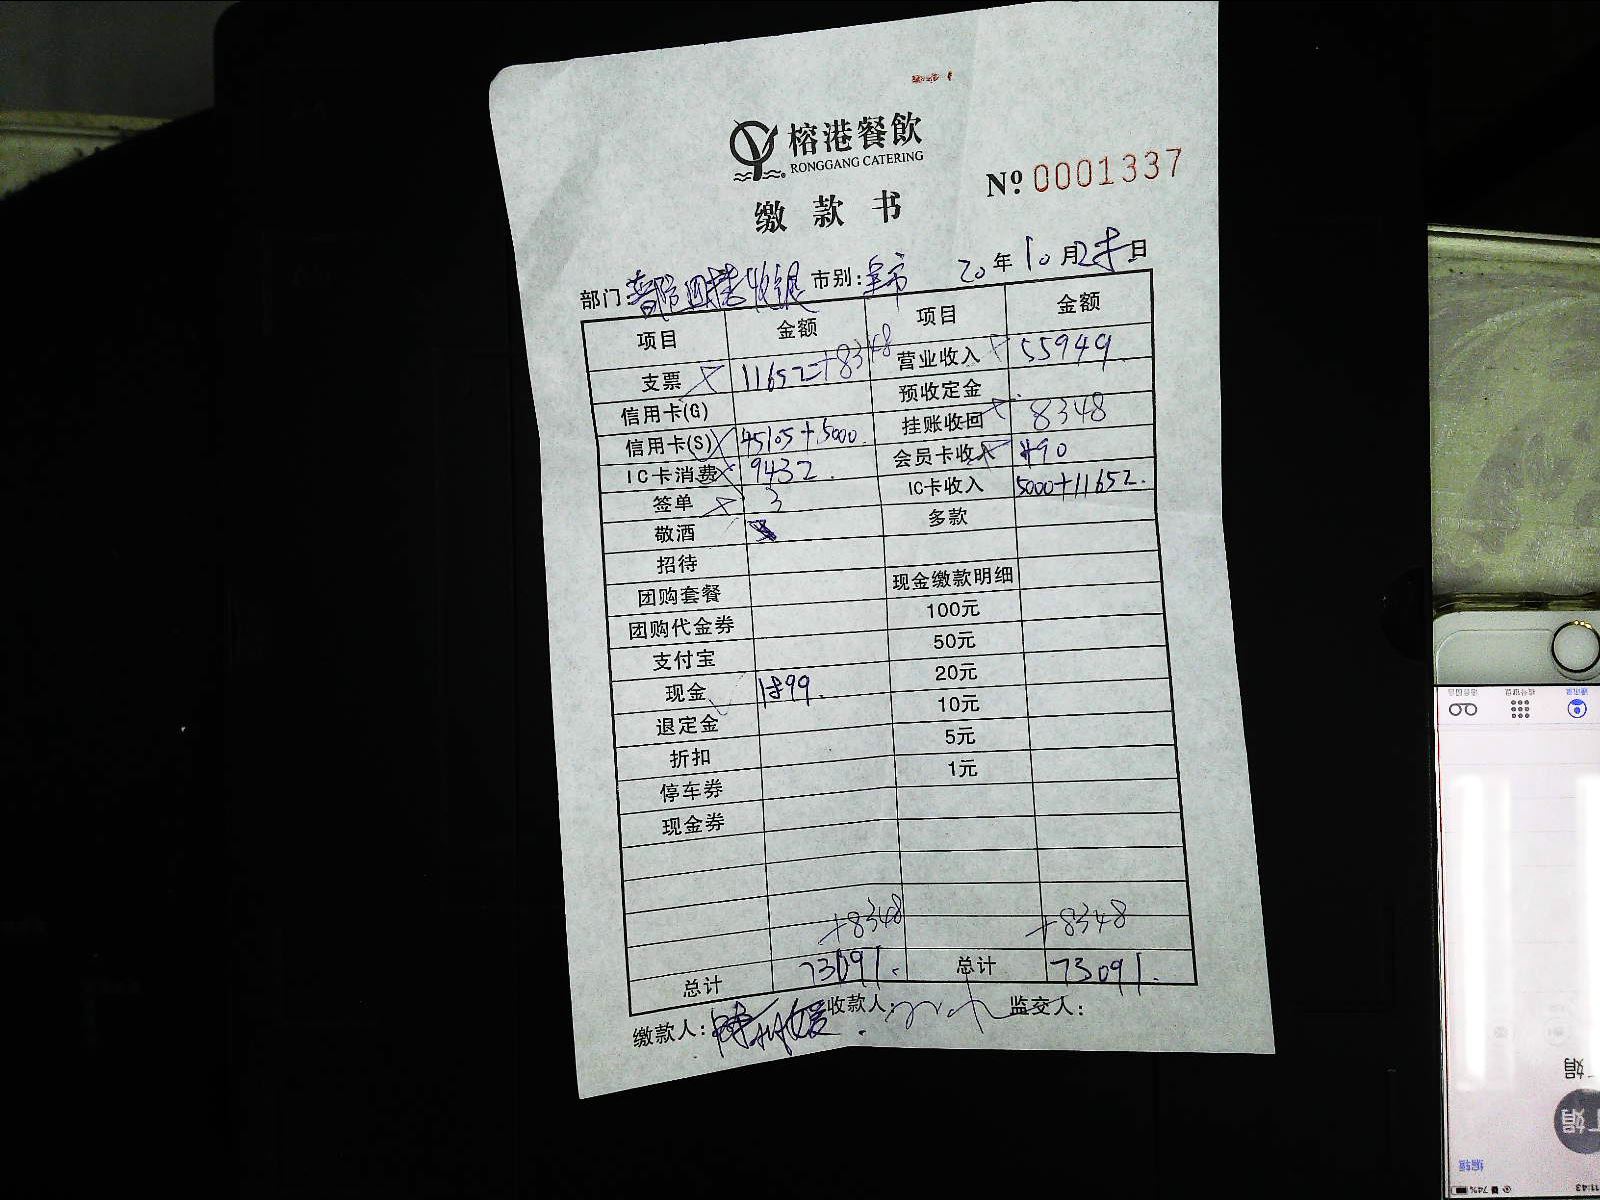 榕港餐飲
RONGGANG CATERING
Nº 0001337
缴款书
部门: 收银 市别: 20年10月2 日
项目 金额 项目 金额
支票 11652+8348 营业收入 55949
信用卡(G) 预收定金
信用卡(S) 45105+5000 挂账收回 8348
IC卡消费 9432 会员卡收入 490
签单 3 IC卡收入 5000+11652
敬酒 多款
招待
团购套餐 现金缴款明细
团购代金券 100元
支付宝 50元
现金 1899 20元
退定金 10元
折扣 5元
停车券 1元
现金券
+8348 +8348
总计 73091 总计 73091
缴款人: 收款人: 监交人:
编辑
74%
11:43